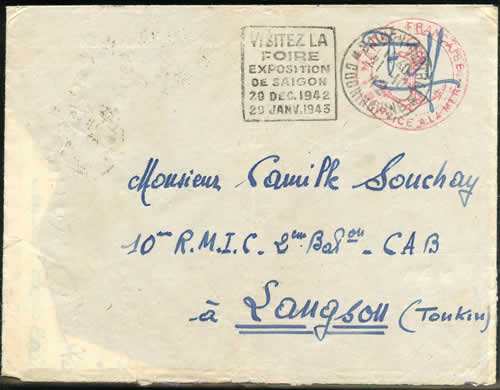 VISITEZ LA
FOIRE
EXPOSITION
DE SAIGON
20 DEC. 1942
29 JANV. 1943
FRANÇAISE
A LA MER
Monsieur Camille Souchay
10me R.M.I.C. 2me Baton - CAB
à Langson (Tonkin)